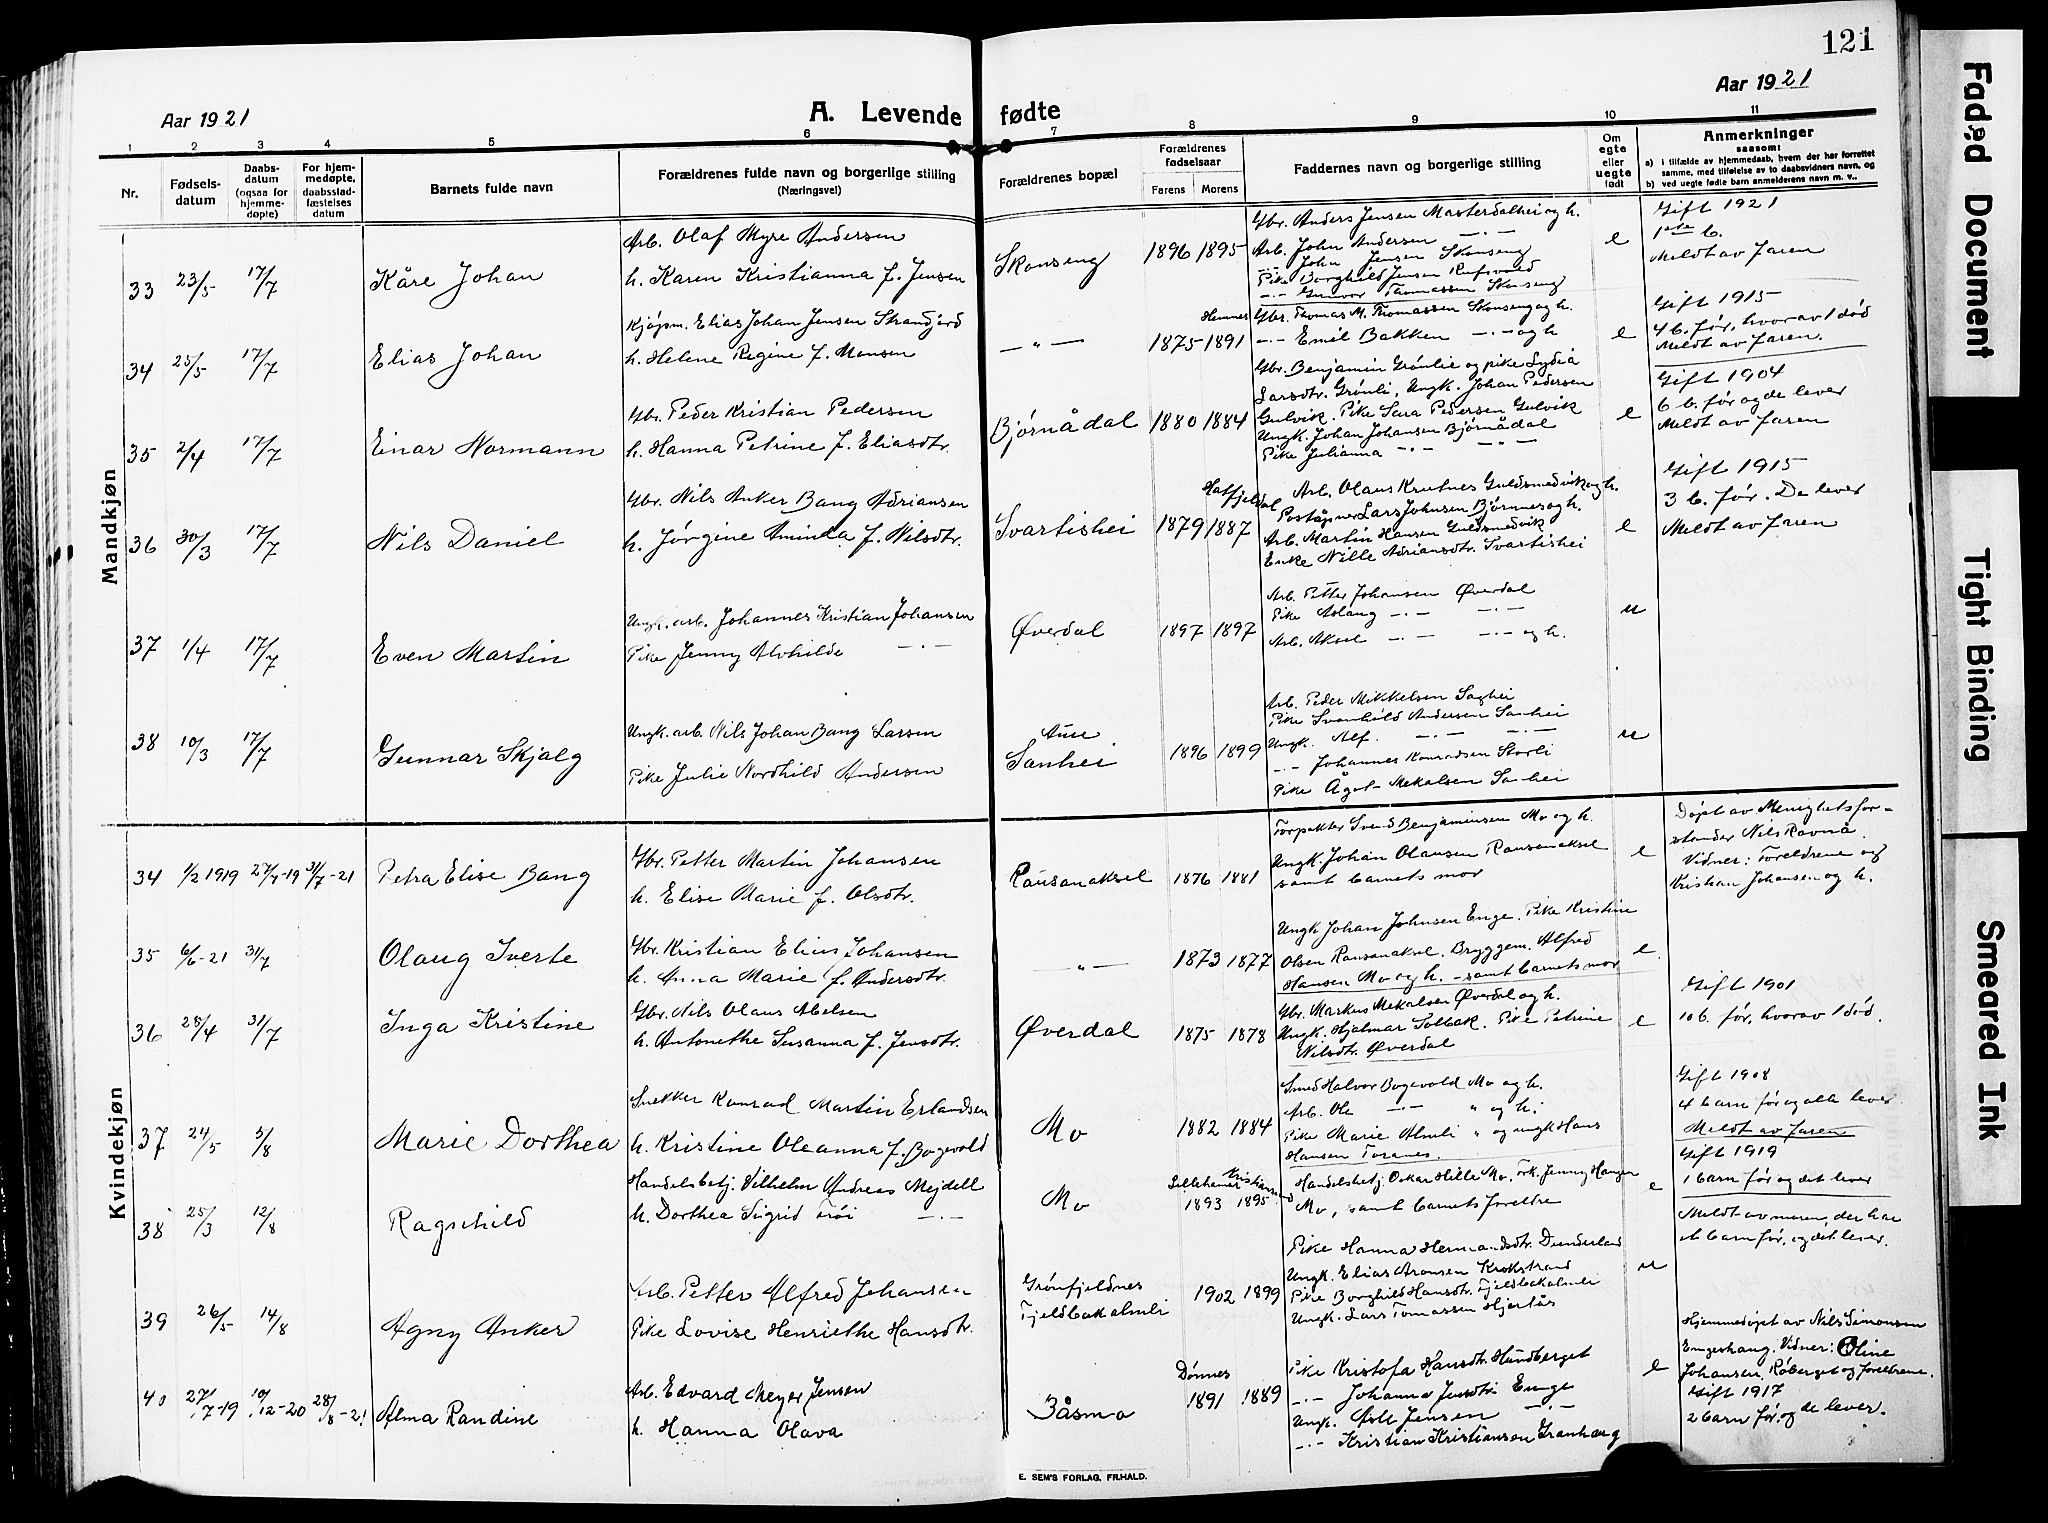 121
Aar 1921
A. Levende fødte
Aar 1921
1 2 3 4 5 6 7 8 9 10 11
Nr.
Fødsels-
datum
Daabs-
datum
(ogsaa for
hjemme-
døpte)
For hjem-
medøpte,
daabsstad-
fæstelses
datum
Barnets fulde navn
Forældrenes fulde navn og borgerlige stilling
(Næringsvei)
Forældrenes bopæl
Forældrenes
fødselsaar
Farens Morens
Faddernes navn og borgerlige stilling
Om
egte
eller
uegte
født
Anmerkninger
saasom:
a) i tilfælde av hjemmedaab, hvem der har forrettet
samme, med tilføielse av to daabsvidners navn, og
b) ved uegte fødte barn anmelderens navn m. v.,
Mandkjøn
33 23/5 17/7 Kåre Johan
Arb. Olaf Myre Andersen
h. Karen Kristianna f. Jensen
Skonseng 1896 1895
Gbr. Anders Jensen Masterdalhei og h.
Arb. John Andersen —·—
John Jensen Skonseng
Pike Borghild Jensen Rufsvold
—·— Gunvor Thomassen Skonseng
e
Gift 1921
1ste b.
Meldt av faren
34 25/5 17/7 Elias Johan
Kjøpm. Elias Johan Jensen Strandjord
h. Helene Regine f. Monsen
—"— 1875 Hemnes 1891
Gbr. Thomas M. Thomassen Skonseng og h.
—·— Emil Bakken —·— og h
e
Gift 1915
4 b. før, hvorav 1 død
Meldt av faren.
35 2/4 17/7 Einar Normann
Gbr. Peder Kristian Pedersen
h. Hanna Petrine f. Eliasdtr.
Bjørnådal 1880 1884
Gbr. Benjamin Grønlie og pike Lydia
Larsdtr. Grønli, Ungk. Johan Pedersen
Gulvik. Pike Sara Pedersen Gulvik
Ungk. Johan Johansen Bjørnådal
Pike Julianna —·— —·—
e
Gift 1904
6 b. før og de lever
Meldt av faren
36 30/3 17/7 Nils Daniel
Gbr. Nils Anker Bang Adriansen
h. Jørgine Aminda f. Nilsdtr.
Svartishei 1879 Hatfjeldal 1887
Arb. Olaus Knutnes Guldsmedvik og h.
Poståpner Lars Johnsen Bjørnnes og h.
Arb. Martin Hansen Guldsmedvik
Enke Nille Adriansdtr. Svartishei
e
Gift 1915
3 b. før. De lever
Meldt av faren
37 1/4 17/7 Even Martin
Ungk. arb. Johannes Kristian Johansen
Pike Jenny Alvhilde —·—
Øverdal 1897 1897
Arb. Petter Johansen Øverdal
Pike Aslaug —·— —·—
Arb. Aksel —·— —·— og h.
u
38 10/3 17/7 Gunnar Skjalg
Ungk. arb. Nils Johan Bang Larsen
Pike Julie Nordhild Andersen
Aune
Sanhei 1896 1899
Arb. Peder Mikkelsen Saghei
Pike Svanhild Andersen Sanhei
Ungk. Alf. —·— —·—
—·— Johannes Konradsen Storli
Pike Ågot Mekalsen Sanhei
u
Kvindekjøn
34 1/2 1919 27/7-19 31/7-21 Petra Elise Bang
Gbr. Petter Martin Johansen
h. Elise Marie f. Olsdtr.
Rausanaksel 1876 1881
Forpakter Svend Benjaminsen Mo og h.
Ungk. Johan Olausen Rausanaksel
samt barnets mor
e
Døpt av Menighetsfor-
stander Nils Ravnå.
Vidner: Foreldrene og
Kristian Johansen og h.
35 6/6-21 31/7 Olaug Sverte
Gbr. Kristian Elius Johansen
h. Anna Marie f. Andersdtr.
—"— 1873 1877
Ungk Johan Johnsen Enge. Pike Kristine
Olsen Rausanaksel. Bryggem. Alfred
Hansen Mo og h. - samt barnets mor
e.
36 28/4 31/7 Inga Kristine
Gbr. Nils Olaus Abelsen
h. Antonethe Susanna f. Jensdtr.
Øverdal 1875 1878
Gbr. Markus Mekalsen Øverdal og h.
Ungk. Hjalmar Solbak. Pike Petrine
Nilsdtr. Øverdal
e
Gift 1901
10 b. før, hvorav 1 død.
37 24/5 5/8 Marie Dorthea
Snekker Konrad Martin Erlandsen
h. Kristine Oleanna f. Bogevold
Mo 1882 1884
Smed Halvor Bogevold Mo og h.
Arb. Ole —·— " og h.
Pike Marie Almli " og ungk Hans
Hansen Toranes.
Gift 1908
4 barn før og alle lever
Meldt av faren
38 25/3 12/8 Ragnhild
Handelsbetj. Vilhelm Andreas Mejdell
h. Dorthea Sigrid Frøi —·—
Mo Lillehamer 1893 Kristiansund 1895
Handelsbetj. Oskar Hille Mo. Frk. Jenny Haugen
Mo, samt barnets foreldre
e
Gift 1919
1 barn før og det lever
39 26/5 14/8 Agny Anker
Arb. Petter Alfred Johansen
Pike Lovise Henriethe Hansdtr.
Grønfjeldnes
Fjeldbakalmli 1902 1899
Pike Hanna Hermandsdtr. Dunderland
Ungk. Elias Aronsen Krokstrand
Pike Borghild Hansdtr. Fjeldbakalmli
Ungk. Lars Tomassen Hjertås
u
Meldt av moren, der har
et barn før, og det lever.
40 27/7-19 10/12-20 28/8-21 Alma Randine
Arb. Edvard Meyer Jensen
h. Hanna Olava
Båsmo Dønnes 1891 1889
Pike Kristofa Hansdtr. Hundberget
—·— Johanna Jensdtr Enge
Ungk. Øste Jensen —·—
—·— Kristian Kristiansen Granhaug
e
Hjemmedøpt av Nils Simonsen
Engeshaug. Vidner: Oline
Johansen, Røberget og foreldrene.
Gift 1917
2 barn før, og de lever.
E. SEM'S FORLAG, FR.HALD.
Faded Document
Tight Binding
Smeared Ink